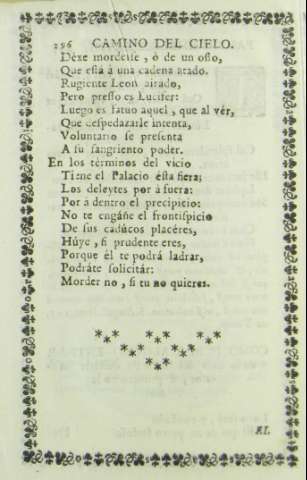 296 CAMINO DEL CIELO.
Dexe mordeſſe, ò de un oſſo,
Que eſtá à una cadena atado.
Rugiente Leon airado,
Pero preſſo es Lucifer:
Luego es fatuo aquel, que al vér,
Que deſpedazarle intenta,
Voluntario ſe preſenta
A ſu ſangriento poder.
En los términos del vicio
Tiene el Palacio éſta fiera;
Los deleytes por à fuera:
Por à dentro el precipicio:
No te engáñe el frontiſpicio
De sus cadúcos placéres,
Húye, ſi prudente eres,
Porque él te podrá ladrar,
Podráte ſolicitár:
Morder no, ſi tu no quieres.
EL